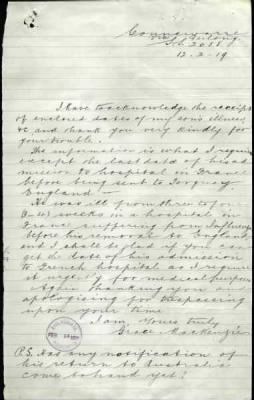 12.2.19
I have to acknowledge the receipt
of enclosed dates of my son's illness
&c and thank you very kindly for
your trouble.
The information is what I require
except the last date of his ad-
mission to hospital in France
before being sent to Torquay
England —
He was ill from three to four
weeks in a hospital in
France suffering from Influenza
before his removal to England
and I shall be glad if you can
get the date of his admission
to French hospital as I require
it urgently for medical purposes
Again thanking you &
apologising for trespassing
upon your time
I am, Yours truly
Grace MacKenzie
P.S. Has any notification of
his return to Australia
come to hand yet?